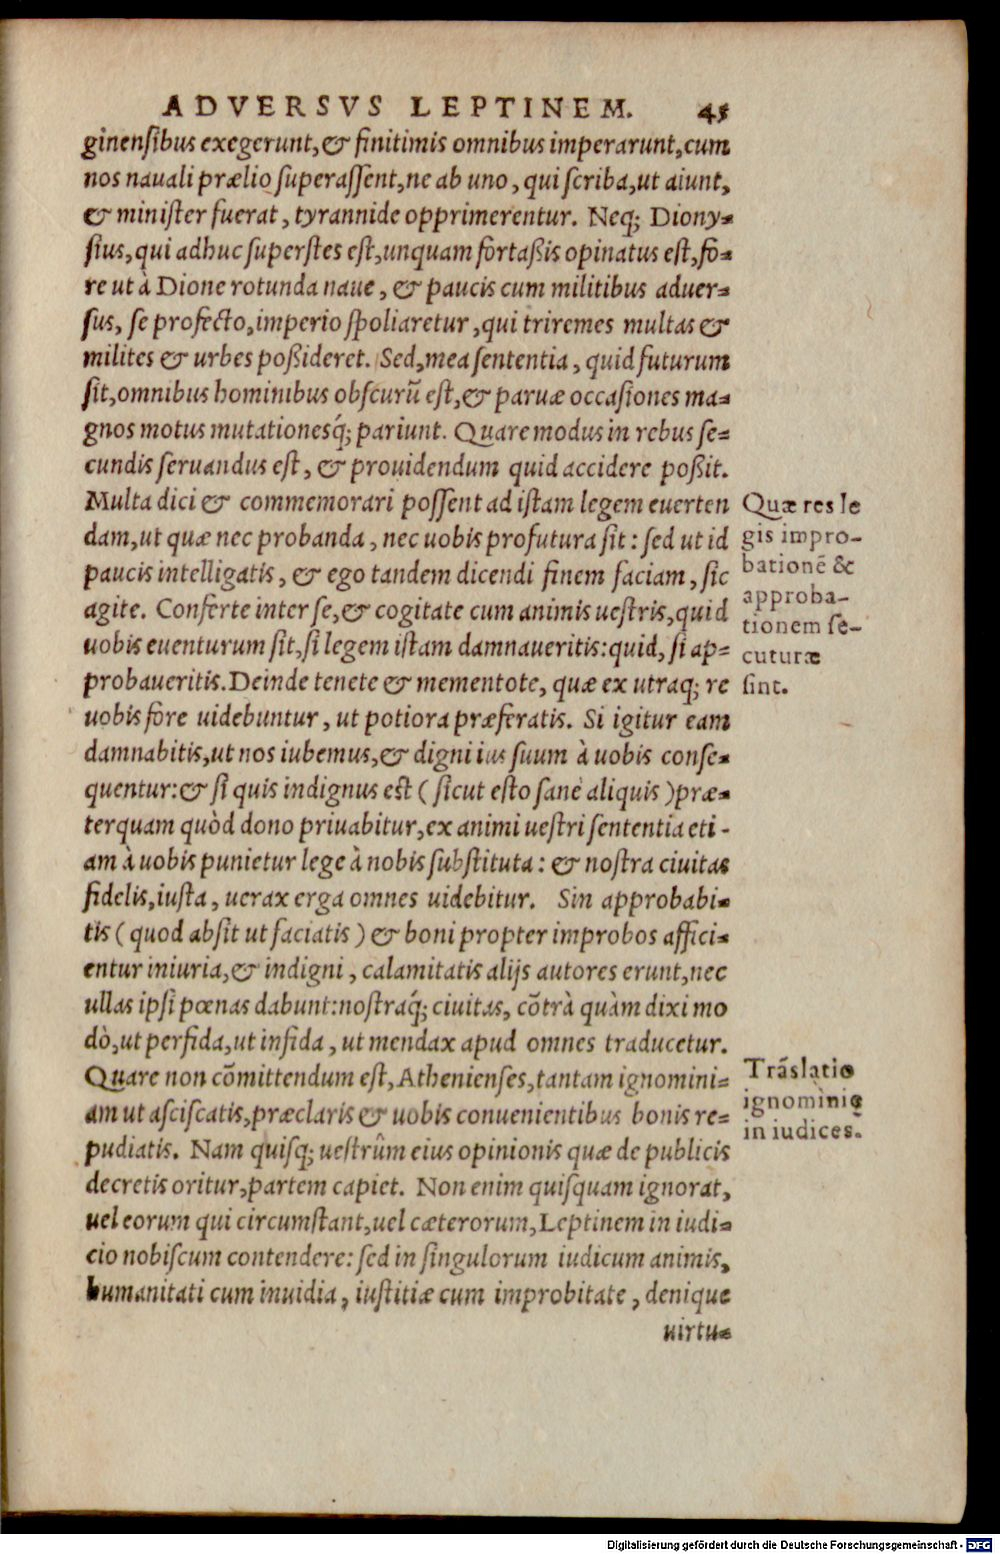 ADVERSVS LEPTINEM. 45
ginensibus exegerunt,& finitimis omnibus imperarunt,cum
nos nauali prælio superassent,ne ab uno, qui scriba,ut aiunt,
& minister fuerat, tyrannide opprimerentur. Neq; Diony-
sius,qui adhuc superstes est,unquam fortaßis opinatus est,fo-
re ut à Dione rotunda naue, & paucis cum militibus aduer-
sus, se profecto,imperio spoliaretur,qui triremes multas &
milites & urbes poßideret. Sed,mea sententia, quid futurum
sit,omnibus hominibus obscurũ est,& paruæ occasiones ma-
gnos motus mutationesq́; pariunt. Quare modus in rebus se-
cundis seruandus est, & prouidendum quid accidere poßit.
Multa dici & commemorari possent ad istam legem euerten
dam,ut quæ nec probanda, nec uobis profutura sit: sed ut id
paucis intelligatis, & ego tandem dicendi finem faciam, sic
agite. Conferte inter se,& cogitate cum animis uestris,quid
uobis euenturum sit,si legem istam damnaueritis:quid, si ap-
probaueritis.Deinde tenete & mementote, quæ ex utraq; re
uobis fore uidebuntur, ut potiora præferatis. Si igitur eam
damnabitis,ut nos iubemus,& digni ius suum à uobis conse-
quentur:& si quis indignus est (sicut esto sanè aliquis)præ-
terquam quòd dono priuabitur,ex animi uestri sententia eti-
am à uobis punietur lege à nobis substituta: & nostra ciuitas
fidelis,iusta, uerax erga omnes uidebitur. Sin approbabi-
tis (quod absit ut faciatis) & boni propter improbos affici-
entur iniuria,& indigni, calamitatis alijs autores erunt,nec
ullas ipsi pœnas dabunt:nostraq́; ciuitas, cõtrà quàm dixi mo
dò,ut perfida,ut infida, ut mendax apud omnes traducetur.
Quare non cõmittendum est,Athenienses,tantam ignomini-
am ut asciscatis,præclaris & uobis conuenientibus bonis re-
pudiatis. Nam quisq; uestrûm eius opinionis quæ de publicis
decretis oritur,partem capiet. Non enim quisquam ignorat,
uel eorum qui circumstant,uel cæterorum,Leptinem in iudi-
cio nobiscum contendere: sed in singulorum iudicum animis,
humanitati cum inuidia, iustitiæ cum improbitate, denique
uirtu-
Quæ res le
gis impro-
bationẽ &
approba-
tionem se-
cuturæ
sint.
Trãslatio
ignominię
in iudices.
Digitalisierung gefördert durch die Deutsche Forschungsgemeinschaft - DFG